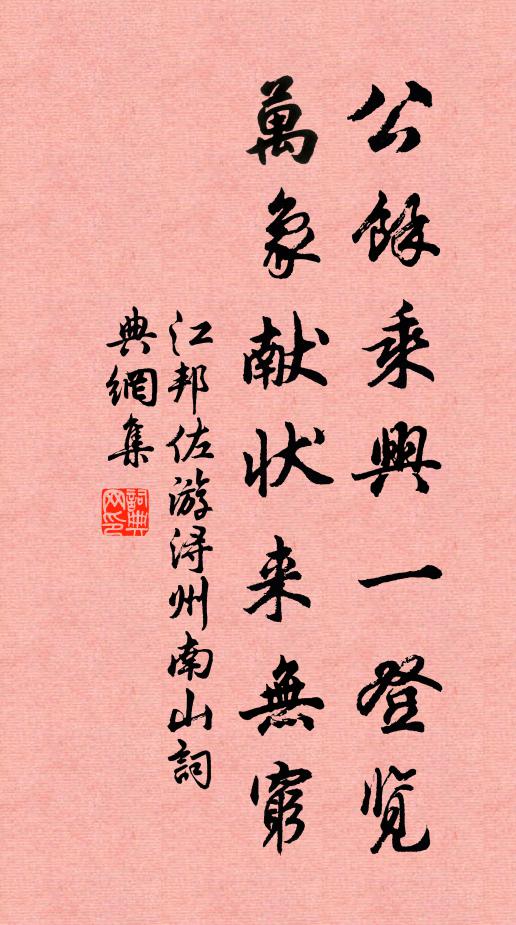 公餘乘興一登览
萬象献状来無窮
江邦佐游浔州南山詞
典網集
詞典網印